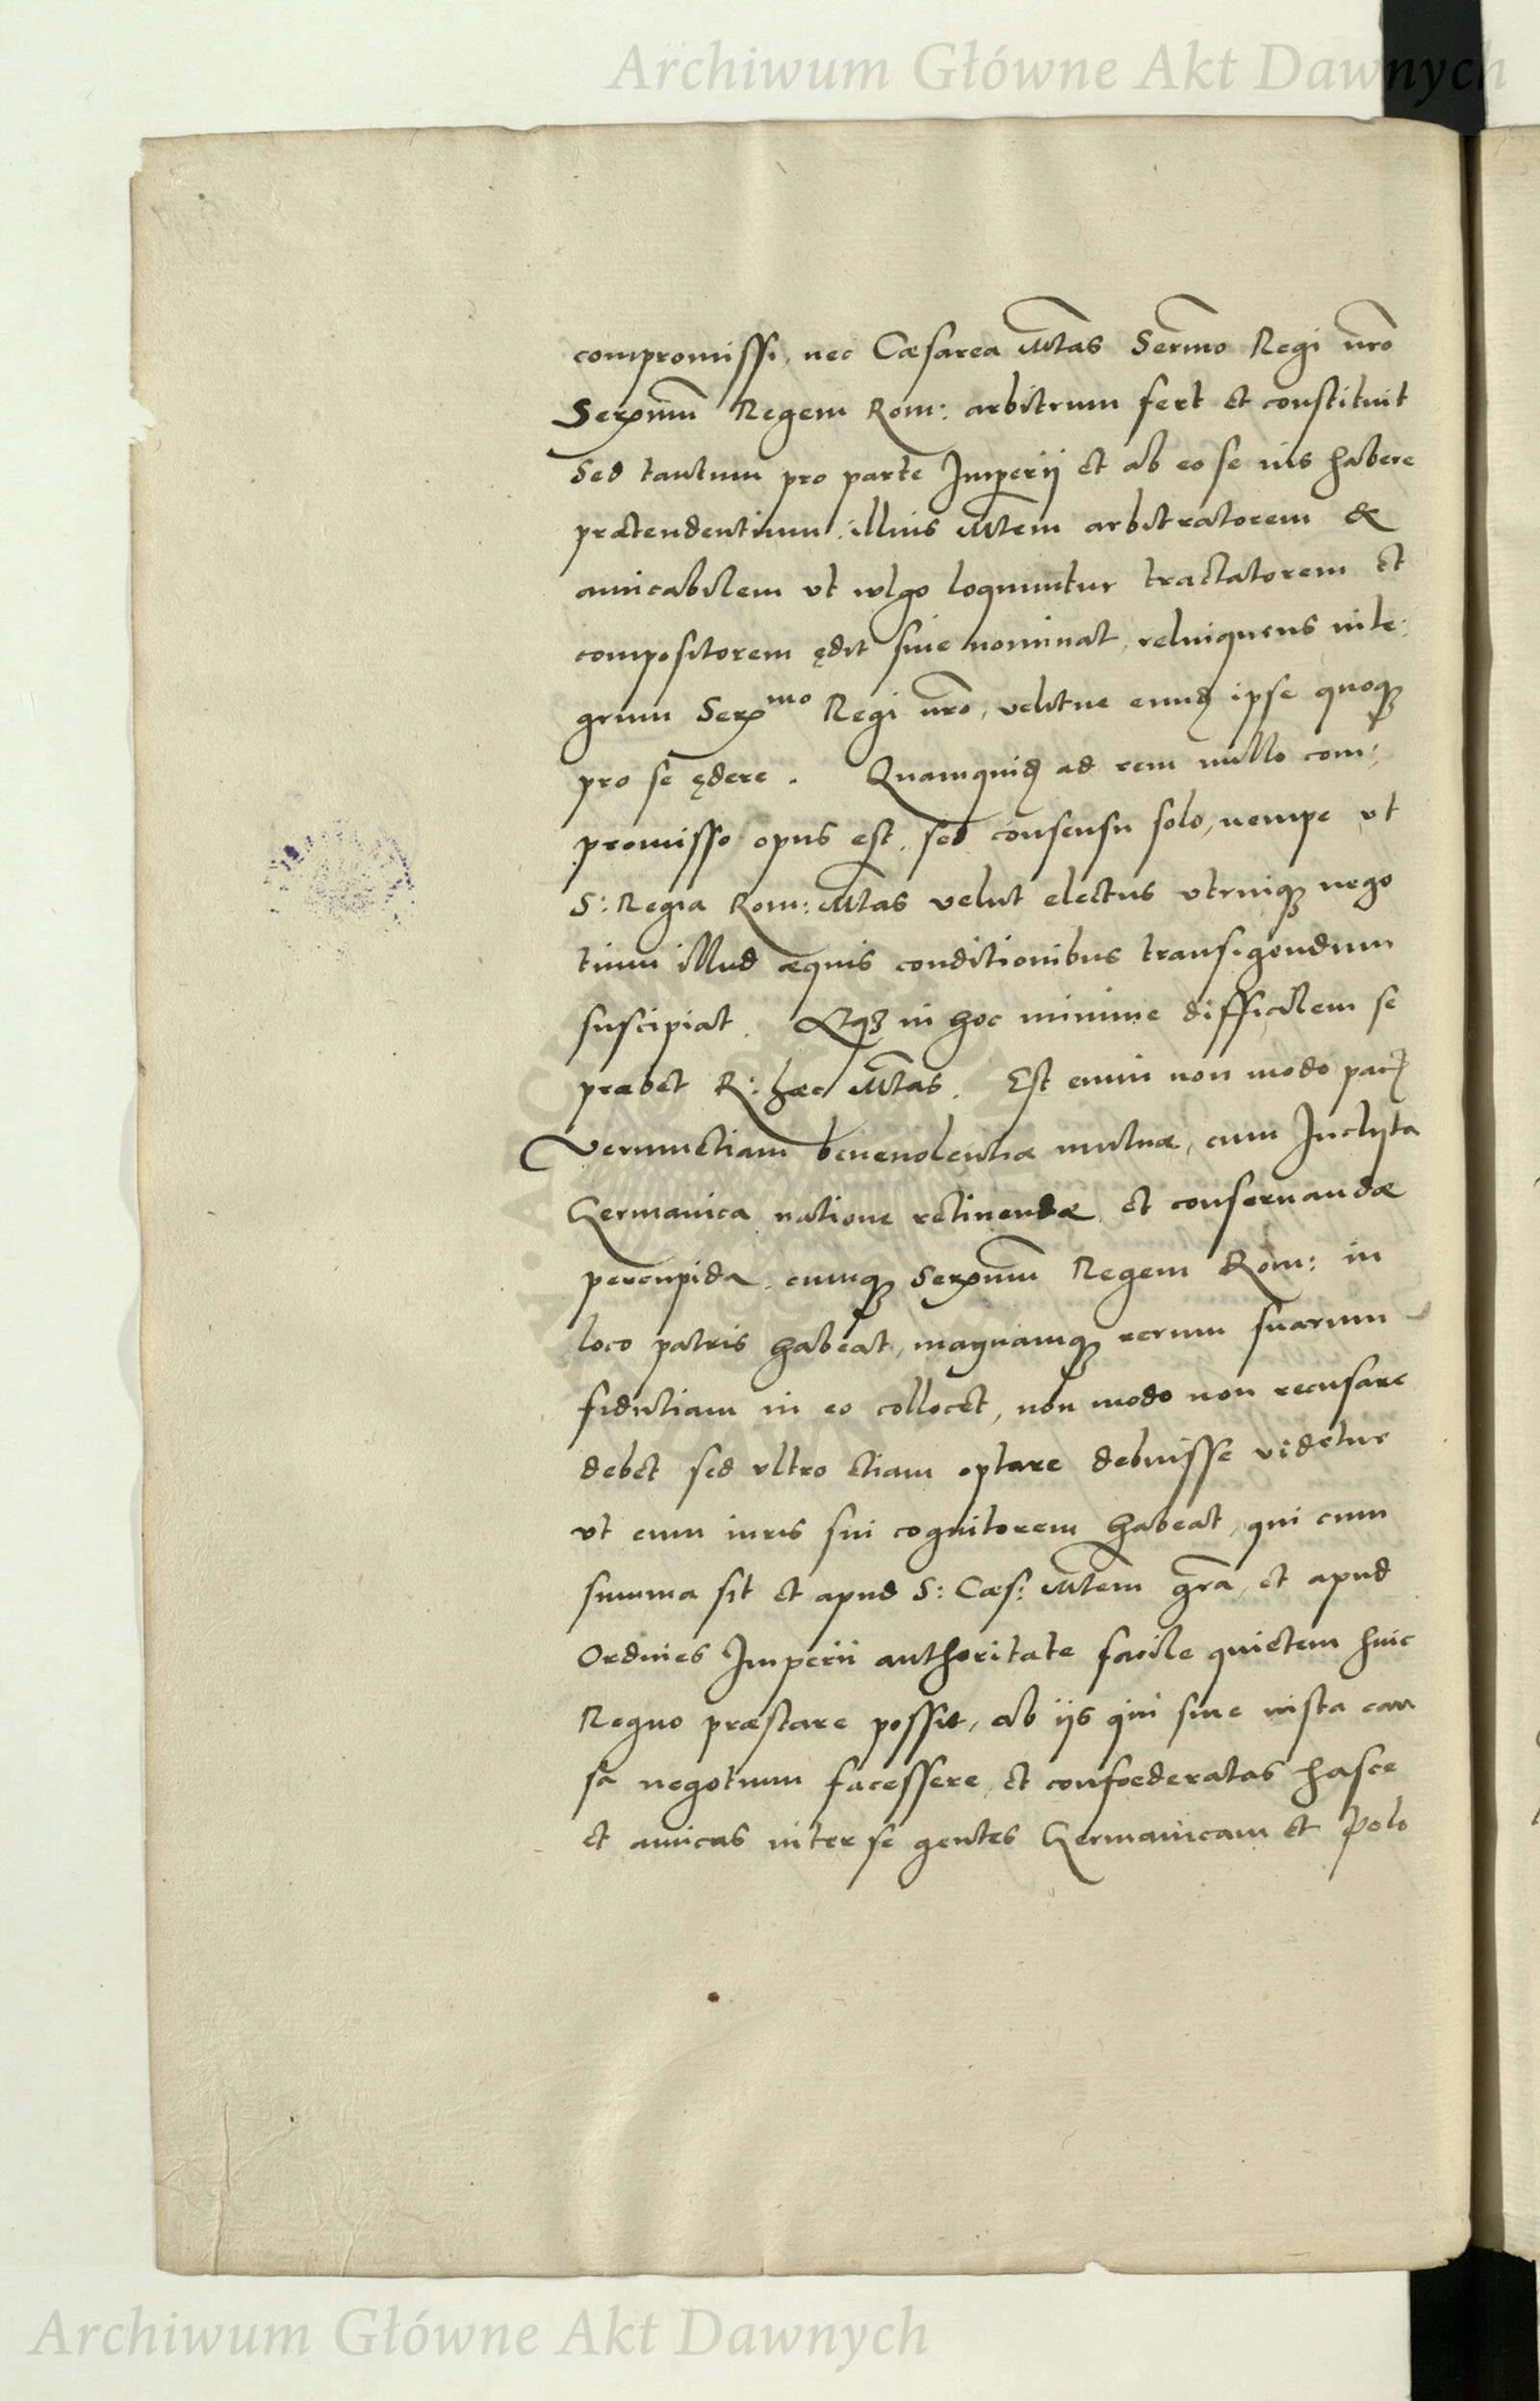 Archiwum Główne Akt Dawnych
compromissi, nec Cæsarea Mtas Sermo Regi nro
Serxmum Regem Rom: arbitrum fert et constituit
Sed tantum pro parte Imperij et ab eo se ius habere
prætendentium, illius Mtem arbitratorem &
amicabilem vt vulgo loquuntur tractatorem et
compositorem ędit siue nominat, relinquens inte:
grum Serxmo Regi nro, velitne eund ipse quoq;
pro se ędere. Quamquid ad rem nullo com:
promisso opus est, sed consensu solo, nempe vt
S: Regia Rom: Mtas velut electus vtrinq; nego
tium illud æquis conditionibus transigendum
suscipiat. Atq; in hoc minime difficilem se
præbet R: hæc Mtas. Est enim non modo pacis
verumetiam beneuolentiæ mutuæ, cum Inclyta
Germanica natione retinendæ et conseruandæ
percupida, cumq; Serxmum Regem Rom: in
loco patris habeat, magnamq; rerum suarum
fidutiam in eo collocet, non modo non recusare
debet sed vltro etiam optare debuisse videtur
vt eum iuris sui cognitorem habeat, qui cum
summa sit et apud S: Cæs: Mtem gra, et apud
Ordines Imperii authoritate facile quietem huic
Regno præstare possit, ab ijs qui siue iusta cau
sa negotium facessere et confœderatas hasce
et amicas inter se gentes Germanicam et Polo
Archiwum Główne Akt Dawnych